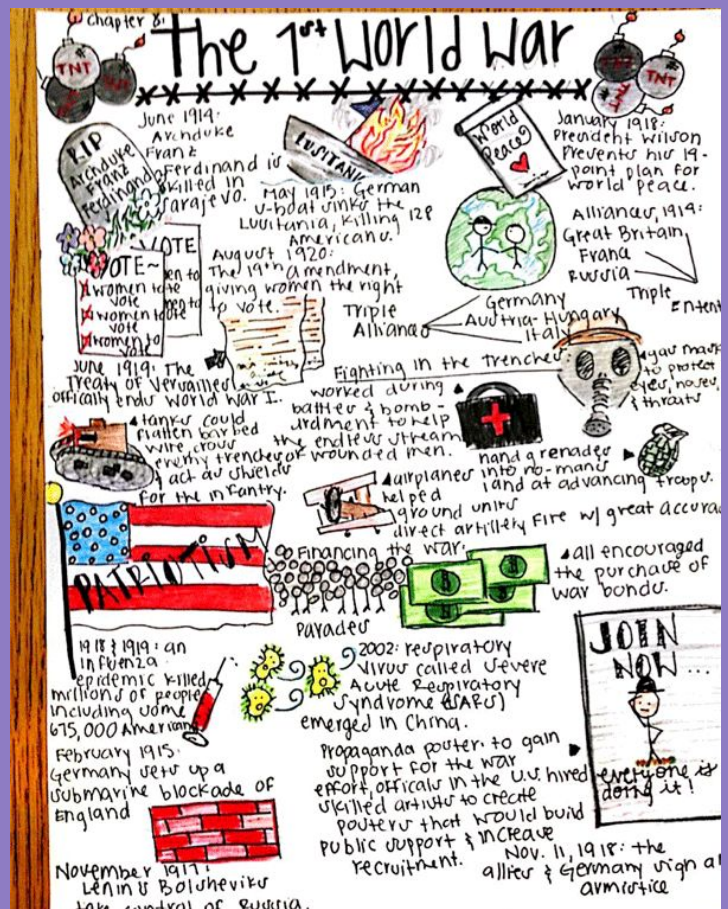 Chapter 8:
The 1st World War
TNT
TNT
TNT
RIP
Archduke
Franz
Ferdinand
June 1914:
Archduke
Franz
Ferdinand is
killed in
Sarajevo.
LUSITANI
May 1915: German
U-boat sinks the
Lusitania, killing 128
Americans.
World
Peace?
January 1918:
President Wilson
Presents his 14-
point plan for
world peace.
Alliances, 1914:
Great Britain
France
Russia
Triple
Entent
VOTE
VOTE~
women to
vote
women to
vote
women to
vote
August 1920:
The 19th amendment,
giving women the right
to vote.
Triple
Alliances
Germany
Austria-Hungary
Italy
June 1919: The
Treaty of Versailles
officially ends World War I.
Fighting in the trenches
worked during
battles & bomb-
ardment to help
the endless stream
of wounded men.
gas mask
to protect
eyes, noses,
& throats
tanks could
flatten barbed
wire cross
enemy trenches
& act as shields
for the infantry.
hand grenades
into no-mans
land at advancing troops.
airplanes
helped
ground units
direct artillery fire w/ great accura
PATRIOTISM
Financing the war.
Parades
all encouraged
the purchase of
war bonds.
1918 & 1919: an
influenza
epidemic killed
millions of people
including some
675,000 American
2002: respiratory
virus called Severe
Acute Respiratory
Syndrome (SARS)
emerged in China.
JOIN
NOW...
everyone is
doing it!
February 1915:
Germany sets up a
submarine blockade of
England
Propaganda poster: to gain
support for the war
effort, officals in the U.S. hired
skilled artists to create
posters that would build
public support & increase
recruitment.
November 1917:
Lenin's Bolsheviks
take control of Russia.
Nov. 11, 1918: the
allies & Germany sign a
armistice